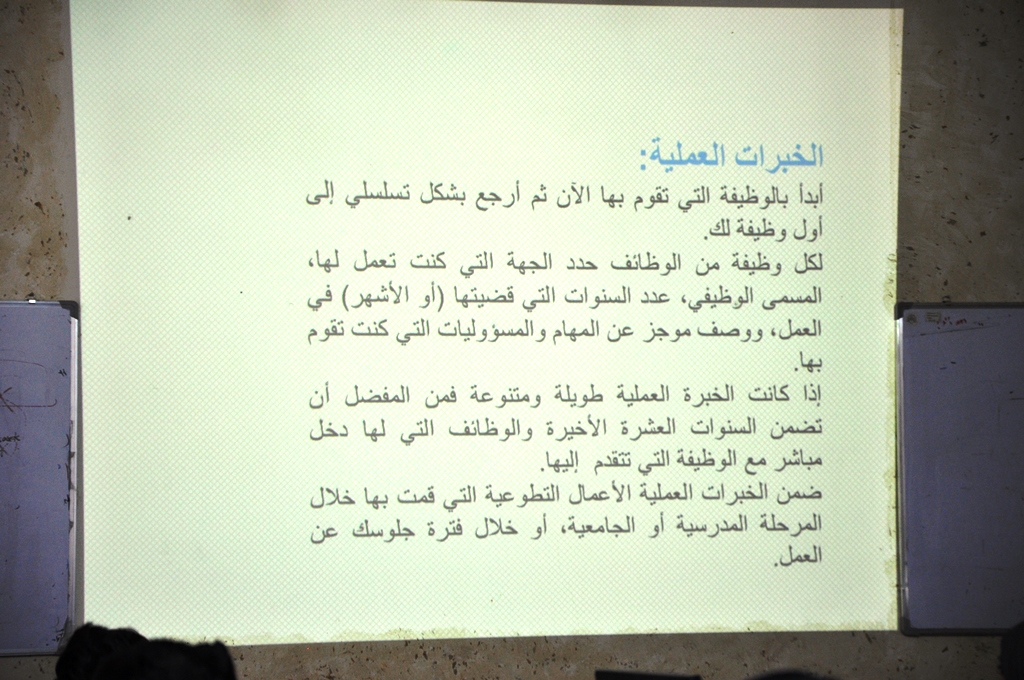 الخبرات العملية:
أبدأ بالوظيفة التي تقوم بها الآن ثم أرجع بشكل تسلسلي إلى
أول وظيفة لك.
لكل وظيفة من الوظائف حدد الجهة التي كنت تعمل لها،
المسمى الوظيفي، عدد السنوات التي قضيتها (أو الأشهر) في
العمل، ووصف موجز عن المهام والمسؤوليات التي كنت تقوم
بها.
إذا كانت الخبرة العملية طويلة ومتنوعة فمن المفضل أن
تضمن السنوات العشرة الأخيرة والوظائف التي لها دخل
مباشر مع الوظيفة التي تتقدم إليها.
ضمن الخبرات العملية الأعمال التطوعية التي قمت بها خلال
المرحلة المدرسية أو الجامعية، أو خلال فترة جلوسك عن
العمل.